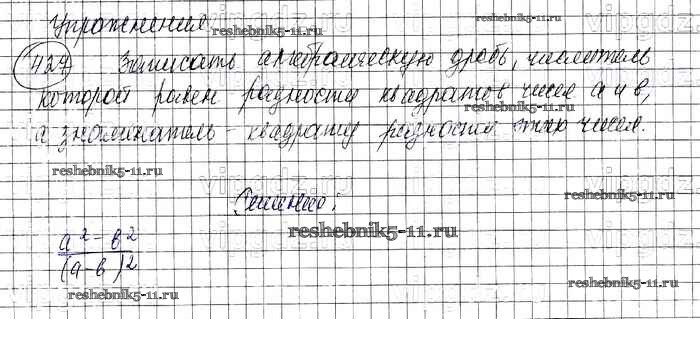 Упражнения
reshebnik5-11.ru
427 Записать алгебраическую дробь, числитель
vipgdz.ru
которой равен разности квадратов чисел a и b,
reshebnik5-11.ru
а знаменатель - квадрату разности этих чисел.
reshebnik5-11.ru
vipgdz.ru
reshebnik5-11.ru
Решение:
reshebnik5-11.ru
a² - b²
(a - b)²
reshebnik5-11.ru
reshebnik5-11.ru